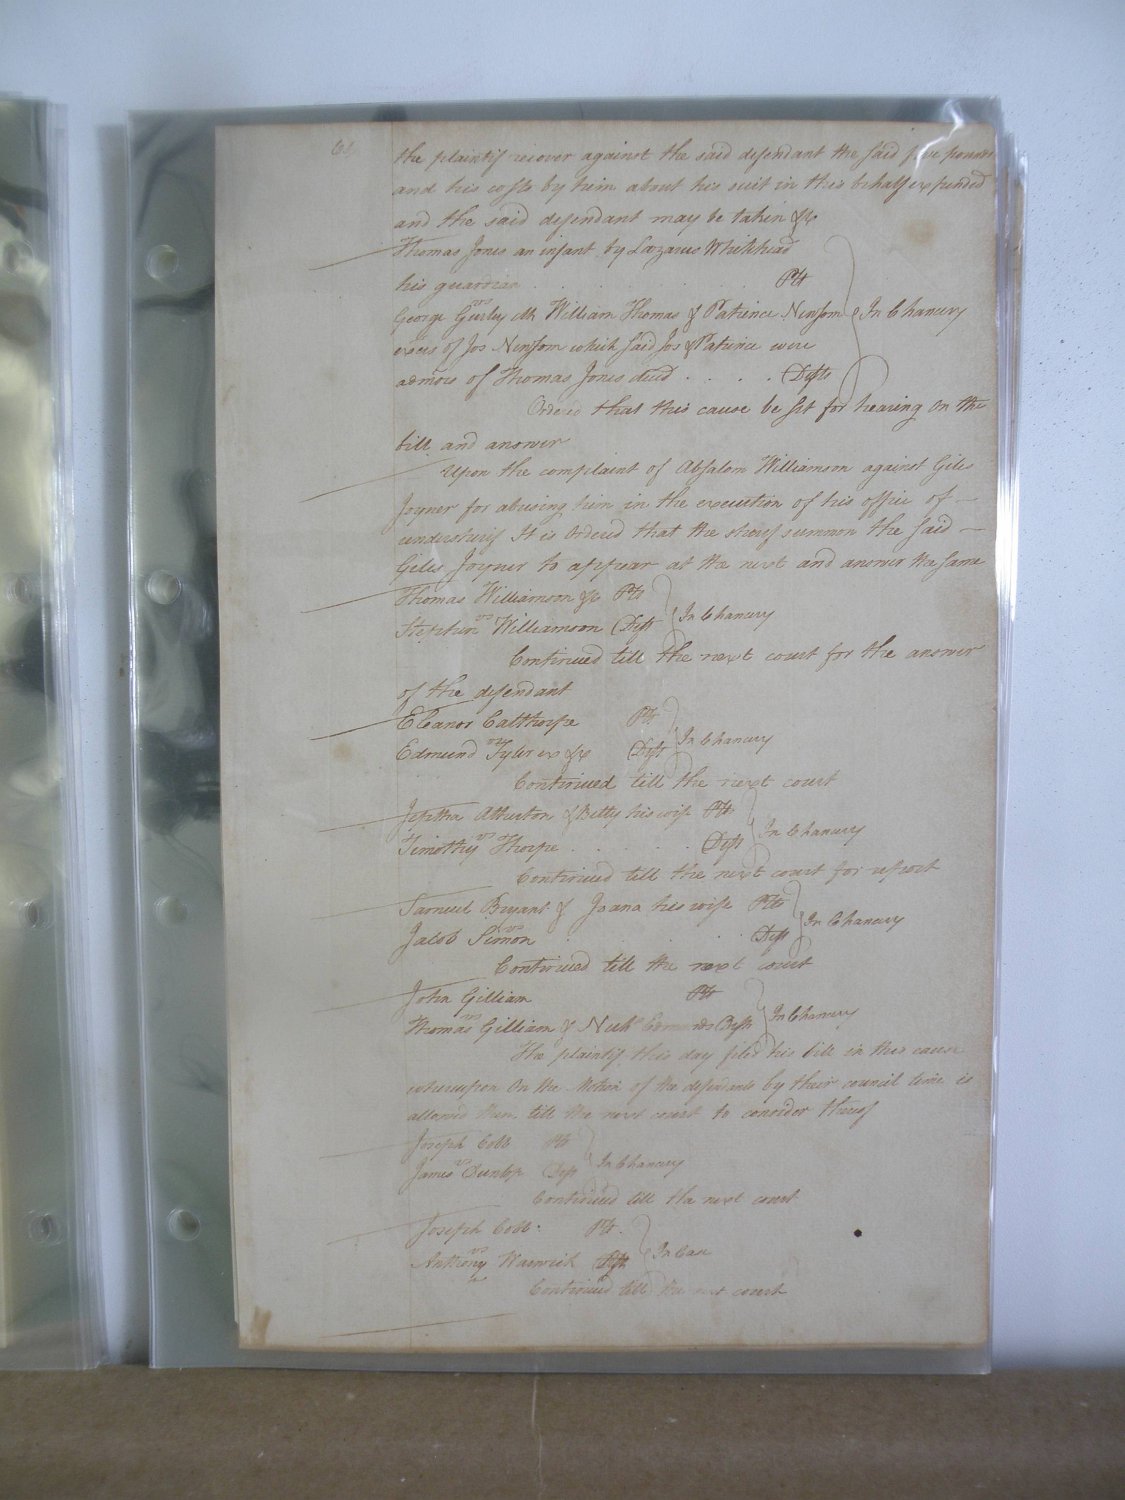 the plaintif recover against the said defendant the said five pounds
and his costs by him about his suit in this behalf expended
and the said defendant may be taken &c
Thomas Jones an infant by Lazarus Whitehead
his guardian Plt
vs
George Gurley Mr William Thomas & Patience Newsom In Chancery
exors of Jos Newsom which said Jos & Patience were
admors of Thomas Jones decd Defts
Ordered that this cause be set for hearing on the
bill and answer
Upon the complaint of Absalom Williamson against Giles
Joyner for abusing him in the execution of his office of
undersherif It is Ordered that the sherif summon the said
Giles Joyner to appear at the next and answer the same
Thomas Williamson &c Plts
vs In Chancery
Stephen Williamson Deft
Continued till the next court for the answer
of the defendant
Eleanor Calthorpe Plt
vs In Chancery
Edmund Tyler ex &c Deft
Continued till the next court
Jeptha Atherton & Betty his wife Plts
vs In Chancery
Timothy Thorpe Deft
Continued till the next court for report
Samuel Bryant & Joana his wife Plts
vs In Chancery
Jacob Simon Deft
Continued till the next court
John Gilliam Plt
vs In Chancery
Thomas Gilliam & Nichs Edmunds Defts
The plaintif this day filed his bill in this cause
whereupon On the Motion of the defendants by their council time is
allowed them till the next court to consider thereof
Joseph Cobb Plt
vs In Chancery
James Dunlop Deft
Continued till the next court
Joseph Cobb Plt.
vs In Case
Anthony Warwick Deft
Continued till the next court